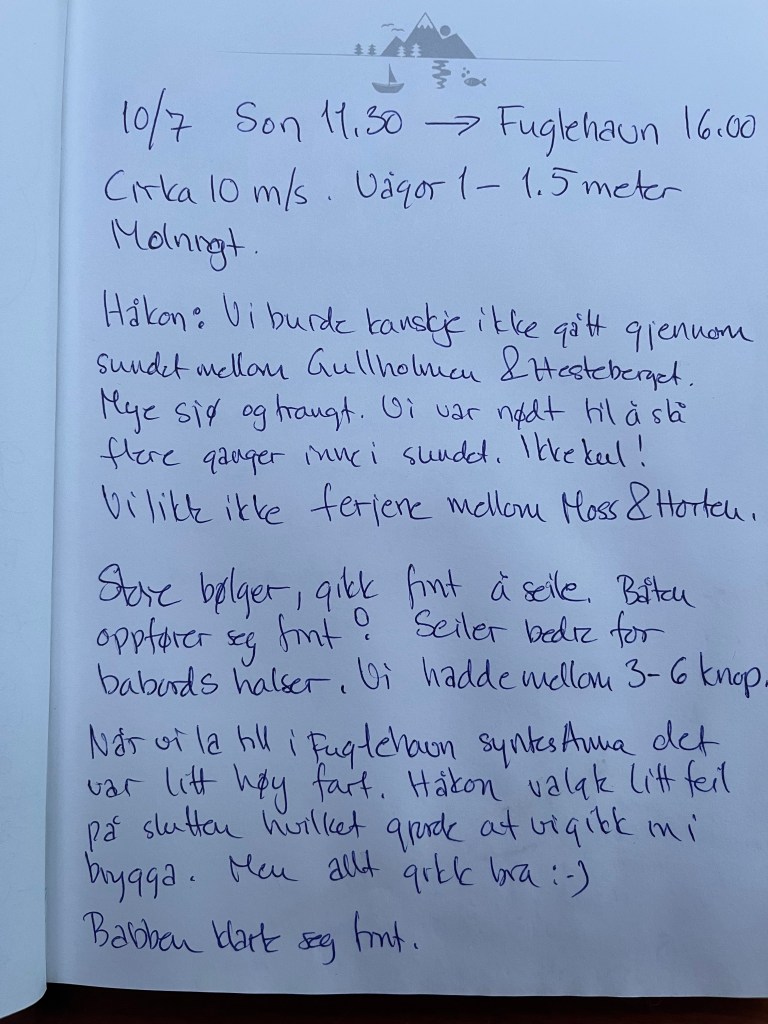 10/7 Son 11.30 → Fuglehavn 16.00
Cirka 10 m/s. Vågor 1 – 1.5 meter
Molnigt.
Håkon: Vi burde kanskje ikke gått gjennom
sundet mellom Gullholmen & Hesteberget.
Mye sjø og trangt. Vi var nødt til å slå
flere ganger inne i sundet. Ikke kul!
Vi likte ikke ferjene mellom Moss & Horten.
Store bølger, gikk fint å seile. Båten
oppfører seg fint! Seiler bedre for
babords halser. Vi hadde mellom 3–6 knop.
Når vi la till i Fuglehavn syntes Anna det
var litt høy fart. Håkon valgte litt feil
på slutten hvilket gjorde at vi gikk inn i
brygga. Men allt gikk bra :-)
Babben klarte seg fint.